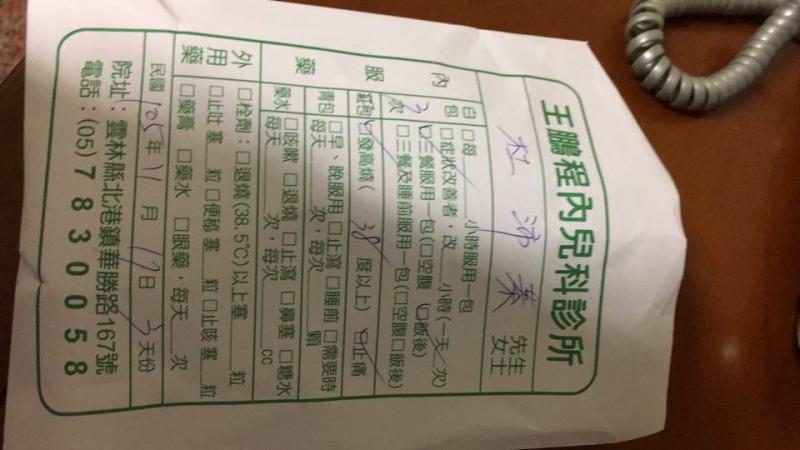 王鵬程內兒科診所
杜沛 先生
女士
內服藥
白包 □每 小時服用一包
□症狀改善者,改 小時(一天 次)
3次 ☑三餐服用一包(□空腹 ☑飯後)
□三餐及睡前服用一包(□空腹□飯後)
紅包 ☑發高燒( 38 度以上) ☑止痛
青包 □早、晚服用 □止瀉 □睡前 □需要時
每天 次,每次 顆
藥水 □咳嗽 □退燒 □止瀉 □鼻塞 □糖水
每天 次,每次 cc
外用藥
□栓劑:□退燒(38.5℃)以上塞 粒
□止吐塞 粒 □便秘塞 粒 □止咳塞 粒
□藥膏 □藥水 □眼藥,每天 次
民國 105 年 11 月 19 日 3 天份
院址:雲林縣北港鎮華勝路167號
電話:(05)7830058